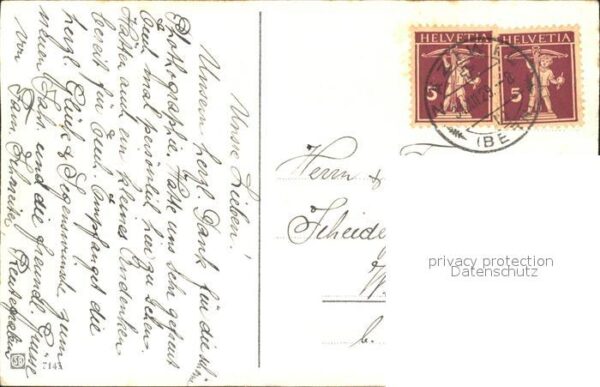 Unsre Lieben!
Unsern herzl. Dank für die
Photographie. Hätte uns sehr gefreut
Euch mal persönlich hier zu sehen.
Hätten auch ein kleines Andenken
bereit für Euch. Empfanget die
herzl. Glück & Segenswünsche zum
neuen Jahr und die freundl. Grüsse
von Fam. Schneiter
7143
HELVETIA
5
HELVETIA
5
(BERN)
Herrn &
Scheide
b.
privacy protection
Datenschutz